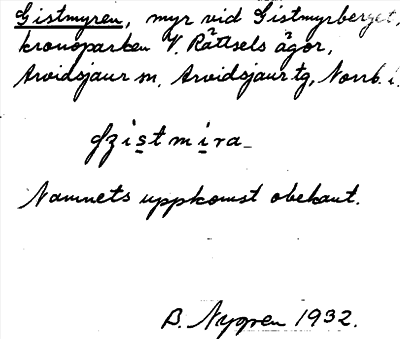 Gistmyren, myr vid Gistmyrberget,
kronoparken V. Rättsels ägor,
Arvidsjaur sn, Arvidsjaur tg, Norrb. l.
Namnets uppkomst obekant.
B. Nygren 1932.